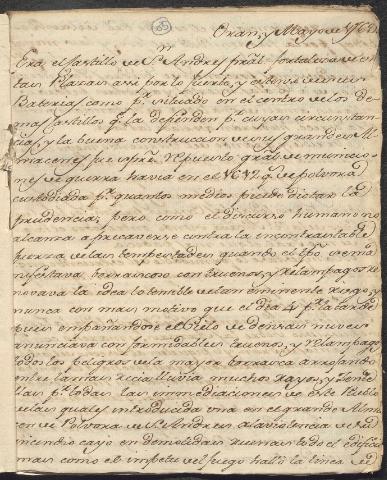 Oran, y Mayo de 176
Era el Castillo de Sn. Andres prâl. fortaleza de
tas Plazas asi por lo fuerte, y de sus
Baterias como pr. situado en el centro de los de
mas Castillos qe. la defienden pr. cuyas circunstan
cias, y la buena construccion de sus grandes Al
macenes fue spre. repuesto grâl de municio
nes de guerra havia en el de polvora
custodiada pr. quantos medios puede dictar la
prudencia; pero como el discurso humano no
alcanza a precaverse contra la incontrastable
fuerza de las tempestades quando el tpo. se ma
nifestava borrascoso con truenos, y relampagos re
novava la idea lo temible de tan eminente riesgo, y
nunca con mas motivo que el dia 4 pr. la tarde
pues empañandose el Cielo de densas nuves
anunciava con formidables truenos, y relampagos
todos los peligros de la mayor borrasca arrojando
entre tanta recia lluvia muchos rayos, y
las pr. todas las immediaciones de este Pueblo
de las quales introducida una en el grande Alma
cen de Polvora de Sn. Andres a la violencia de su
incendio cayo en demolidas ruinas todo el edificio
mas como el impetu del fuego halló la linea de